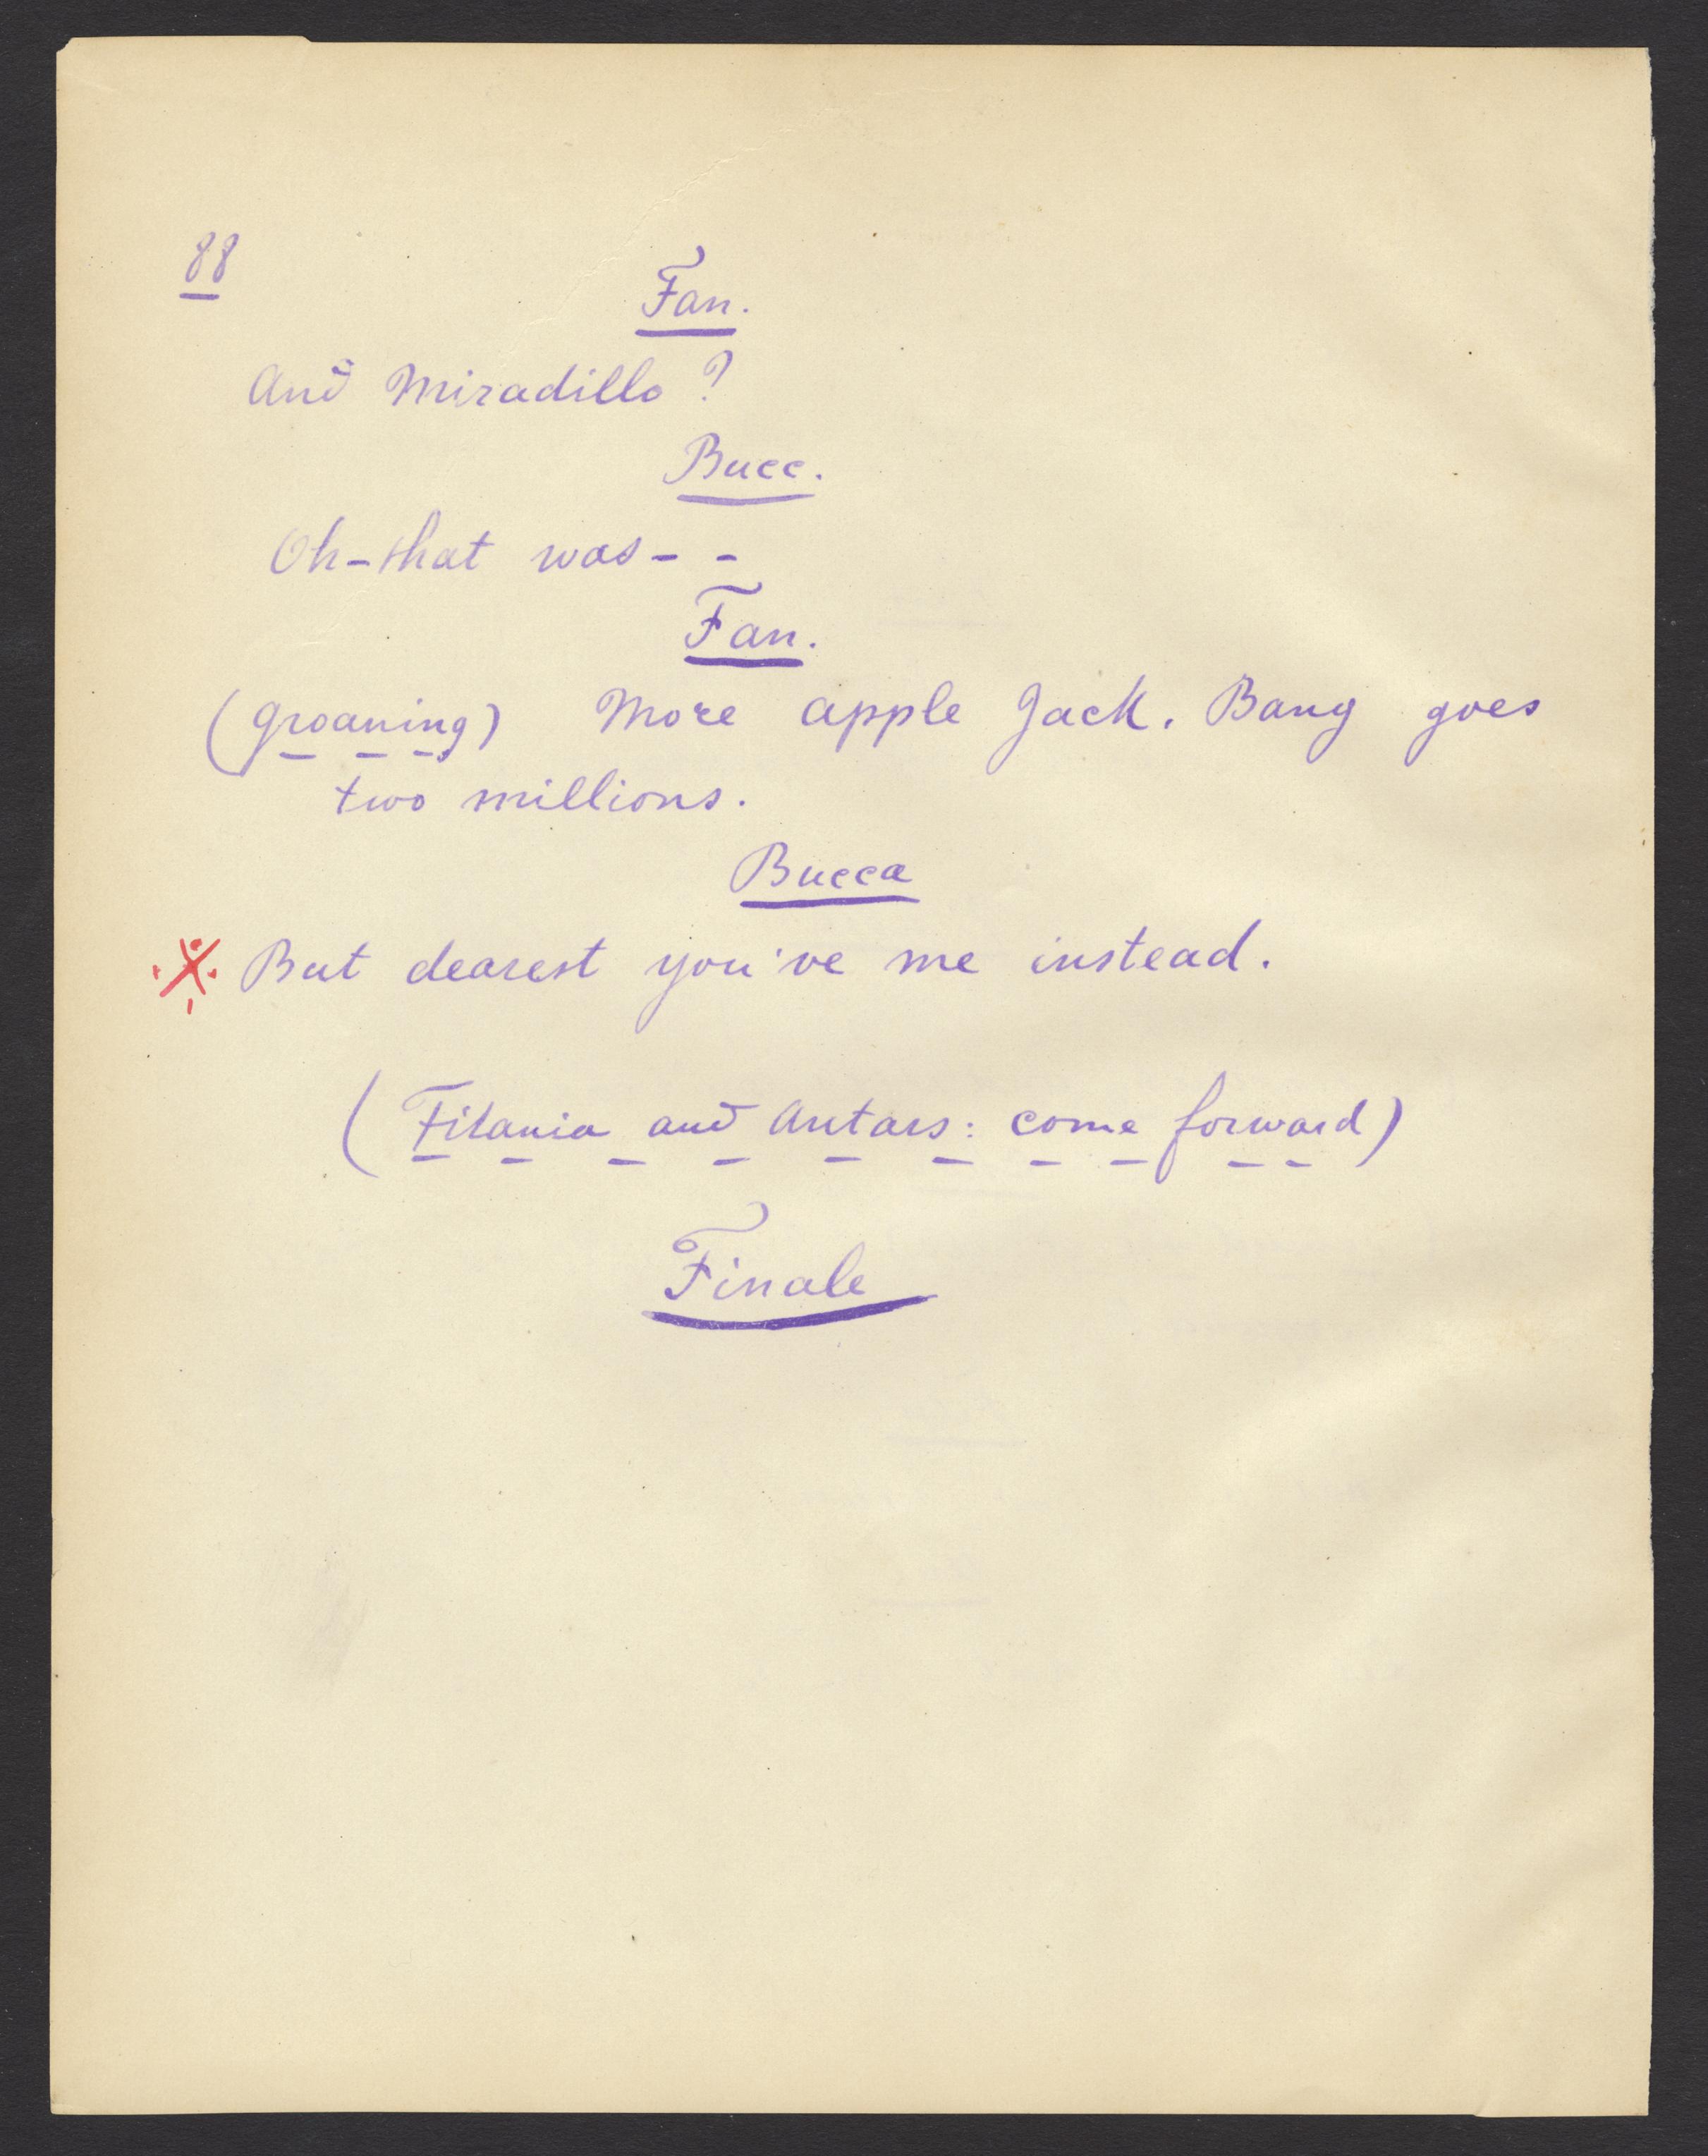 88
Fan.
And Miradillo?
Bucc.
Oh-that was--
Fan.
(groaning) More apple Jack. Bang goes
two millions.
Bucca
But dearest you've me instead.
(Titania and Antars: come forward)
Finale